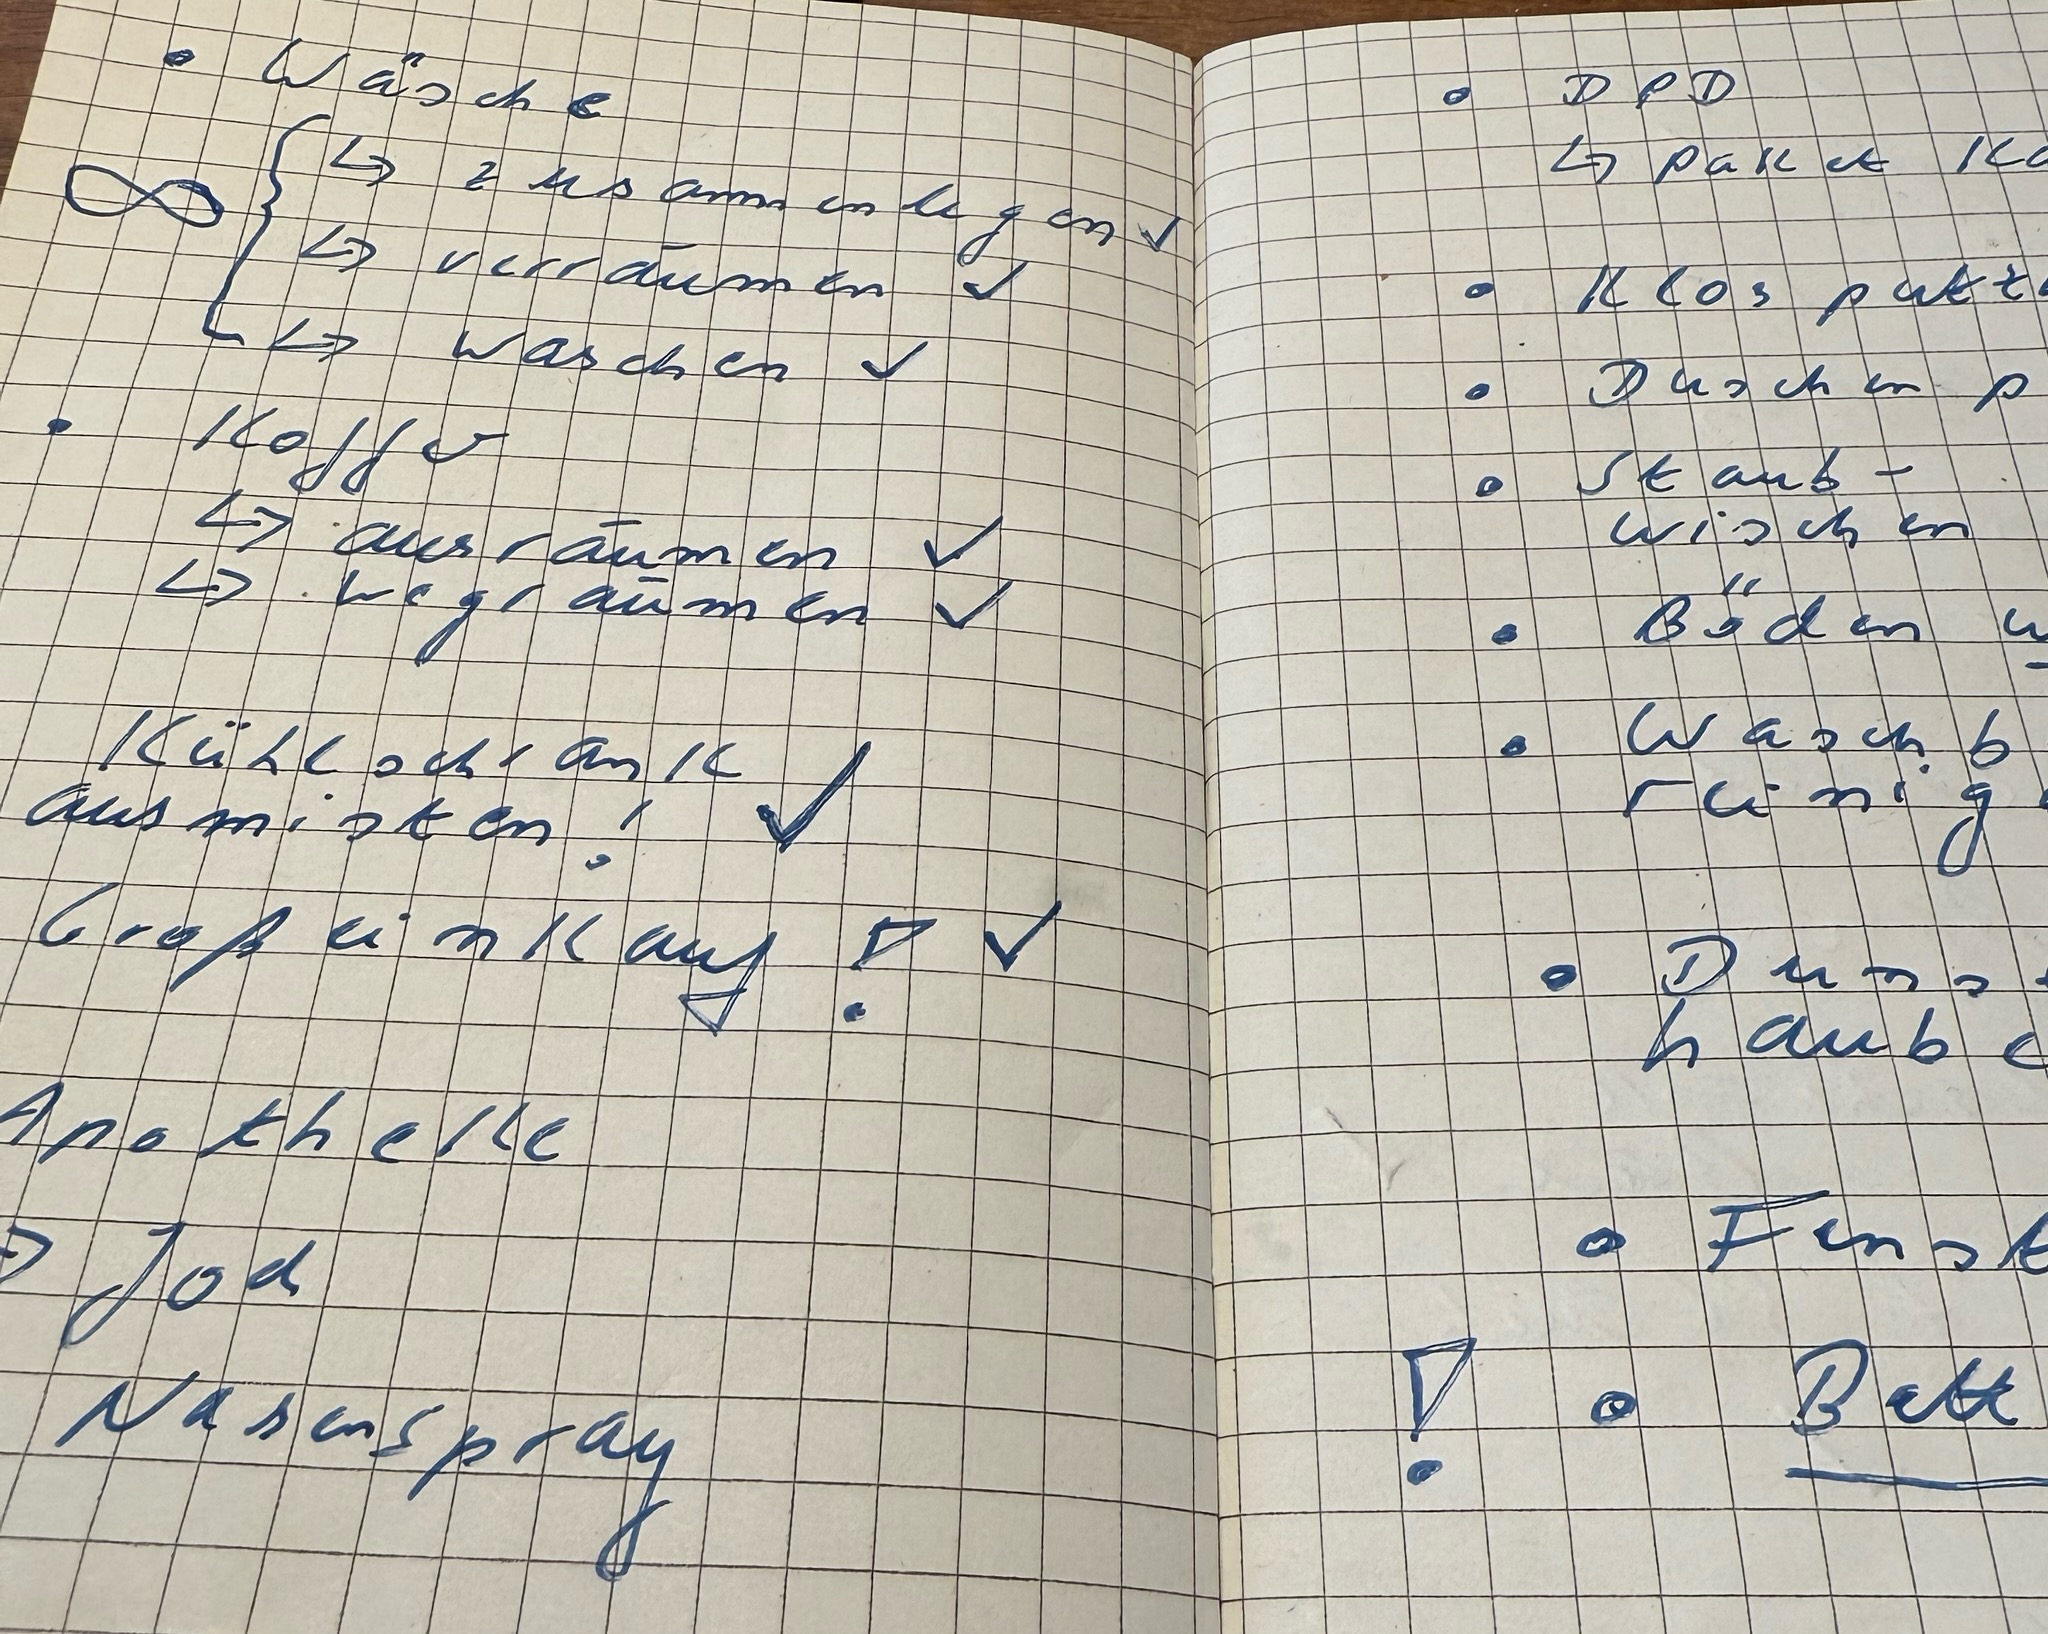 • Wäsche
∞ { ↳ zusammenlegen ✓
↳ verräumen ✓
↳ waschen ✓
• Koffer
↳ ausräumen ✓
↳ wegräumen ✓
Kühlschrank ✓
ausmisten!
Großeinkauf ! ✓
Apotheke
→ Jod
Nasenspray
• DPD
↳ paket
• Klos
• Duschen
• Staub-
wischen
• Böden
• Waschb
reinig
• Duns
haube
• Fenst
! • Bett